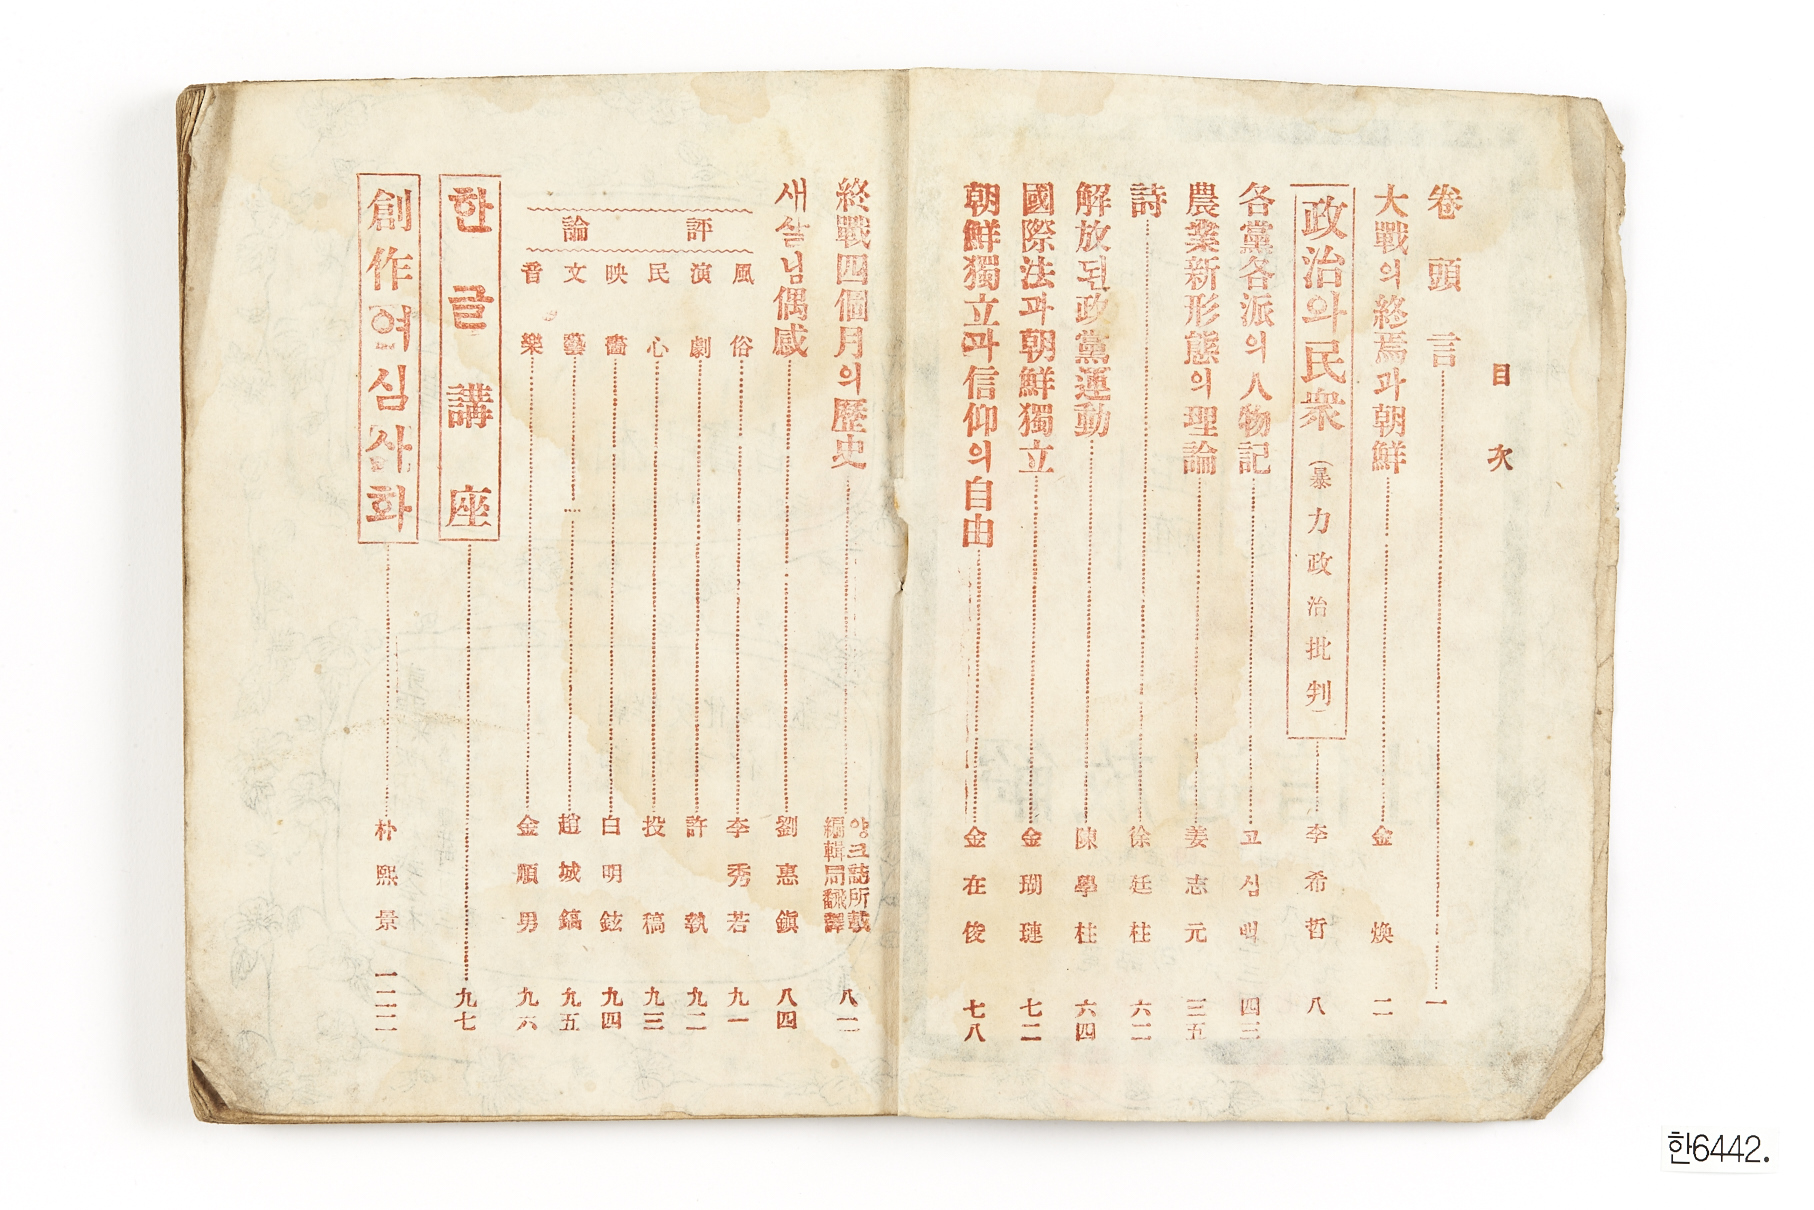 目次
卷頭言 一
大戰의終焉과朝鮮 金煥 二
政治와民衆 (暴力政治批判) 李希哲 八
各黨各派의人物記 고심백 四三
農業新形態의理論 姜志元 三五
詩 徐廷柱 六二
解放된政黨運動 陳學柱 六四
國際法과朝鮮獨立 金瑚璉 七二
朝鮮獨立과信仰의自由 金在俊 七八
終戰四個月의歷史 양크誌所載 編輯局飜譯 八二
새살님偶感 劉惠鎭 八四
評論
風俗 李秀若 九一
演劇 許執 九二
民心 投稿 九三
映畵 白明鉉 九四
文藝 趙城鎬 九五
音樂 金順男 九六
한글講座 九七
創作여심사화 朴熙景 一二二
한6442.